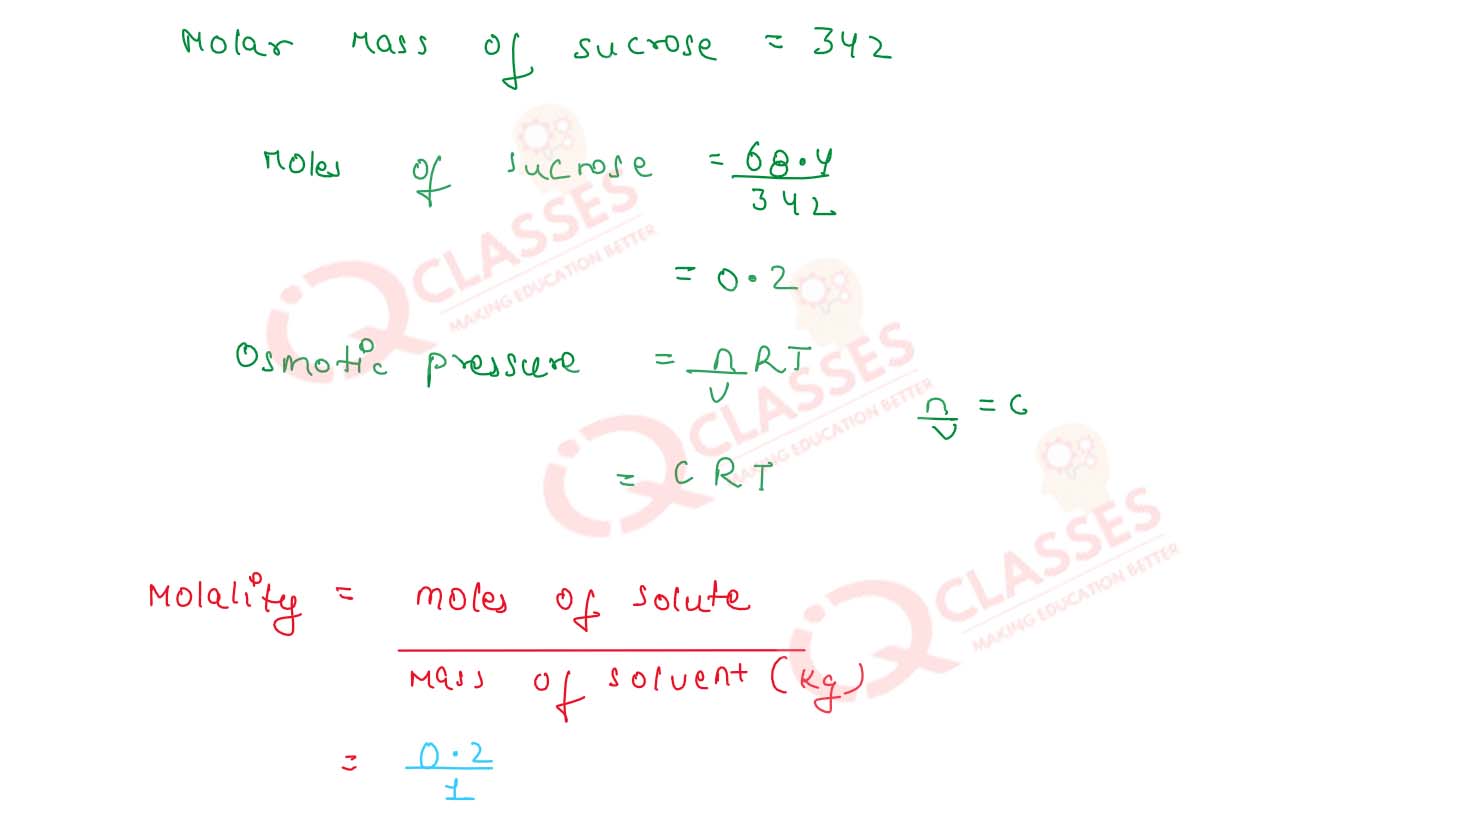 Molar Mass of sucrose = 342
Moles of sucrose = 68.4
342
= 0.2
Osmotic pressure = n/v RT
n/v = C
= C R T
Molality = moles of solute
Mass of solvent (kg)
= 0.2
1
iQ CLASSES
MAKING EDUCATION BETTER
iQ CLASSES
MAKING EDUCATION BETTER
iQ CLASSES
MAKING EDUCATION BETTER